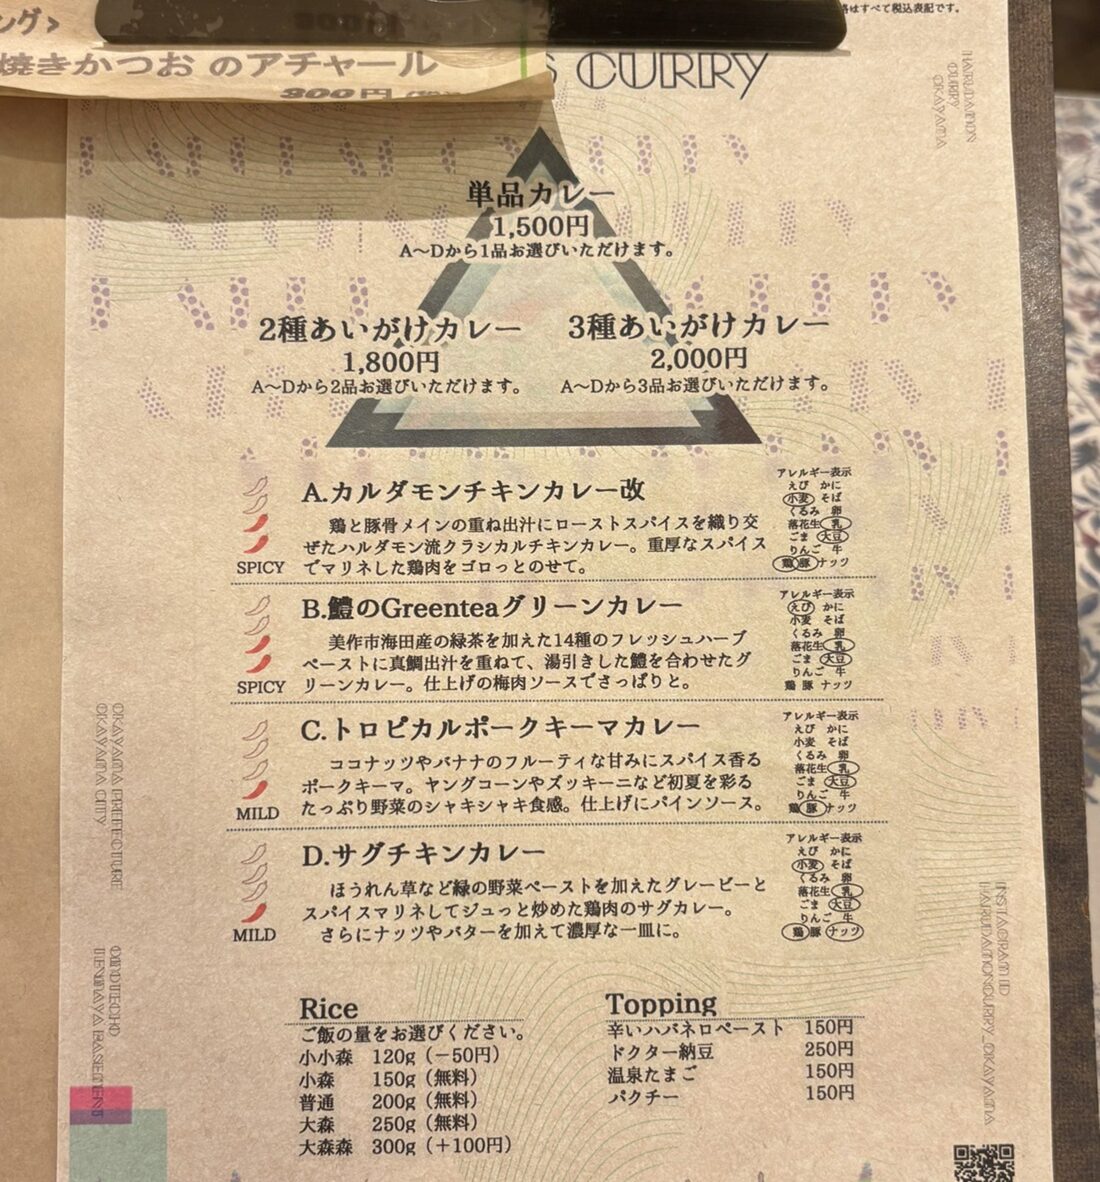 ング>
焼きかつお のアチャール
300円
格はすべて税込表記です。
S CURRY
HARUDAMON
CURRY
OKAYAMA
単品カレー
1,500円
A〜Dから1品お選びいただけます。
2種あいがけカレー
1,800円
A〜Dから2品お選びいただけます。
3種あいがけカレー
2,000円
A〜Dから3品お選びいただけます。
SPICY
A.カルダモンチキンカレー改
鶏と豚骨メインの重ね出汁にローストスパイスを織り交
ぜたハルダモン流クラシカルチキンカレー。重厚なスパイス
でマリネした鶏肉をゴロっとのせて。
アレルギー表示
えび かに
小麦 そば
くるみ 卵
落花生 乳
ごま 大豆
りんご 牛
鶏 豚 ナッツ
SPICY
B.鱧のGreenteaグリーンカレー
美作市海田産の緑茶を加えた14種のフレッシュハーブ
ペーストに真鯛出汁を重ねて、湯引きした鱧を合わせたグ
リーンカレー。仕上げの梅肉ソースでさっぱりと。
アレルギー表示
えび かに
小麦 そば
くるみ 卵
落花生 乳
ごま 大豆
りんご 牛
鶏 豚 ナッツ
MILD
C.トロピカルポークキーマカレー
ココナッツやバナナのフルーティな甘みにスパイス香る
ポークキーマ。ヤングコーンやズッキーニなど初夏を彩る
たっぷり野菜のシャキシャキ食感。仕上げにパインソース。
アレルギー表示
えび かに
小麦 そば
くるみ 卵
落花生 乳
ごま 大豆
りんご 牛
鶏 豚 ナッツ
MILD
D.サグチキンカレー
ほうれん草など緑の野菜ペーストを加えたグレービーと
スパイスマリネしてジュっと炒めた鶏肉のサグカレー。
さらにナッツやバターを加えて濃厚な一皿に。
アレルギー表示
えび かに
小麦 そば
くるみ 卵
落花生 乳
ごま 大豆
りんご 牛
鶏 豚 ナッツ
OKAYAMA PREFECTURE
OKAYAMA CITY
TENMAYA BASEMENT
INSTAGRAM ID
HARUDAMONCURRY_OKAYAMA
Rice
ご飯の量をお選びください。
小小森 120g（−50円）
小森 150g（無料）
普通 200g（無料）
大森 250g（無料）
大森森 300g（＋100円）
Topping
辛いハバネロペースト 150円
ドクター納豆 250円
温泉たまご 150円
パクチー 150円